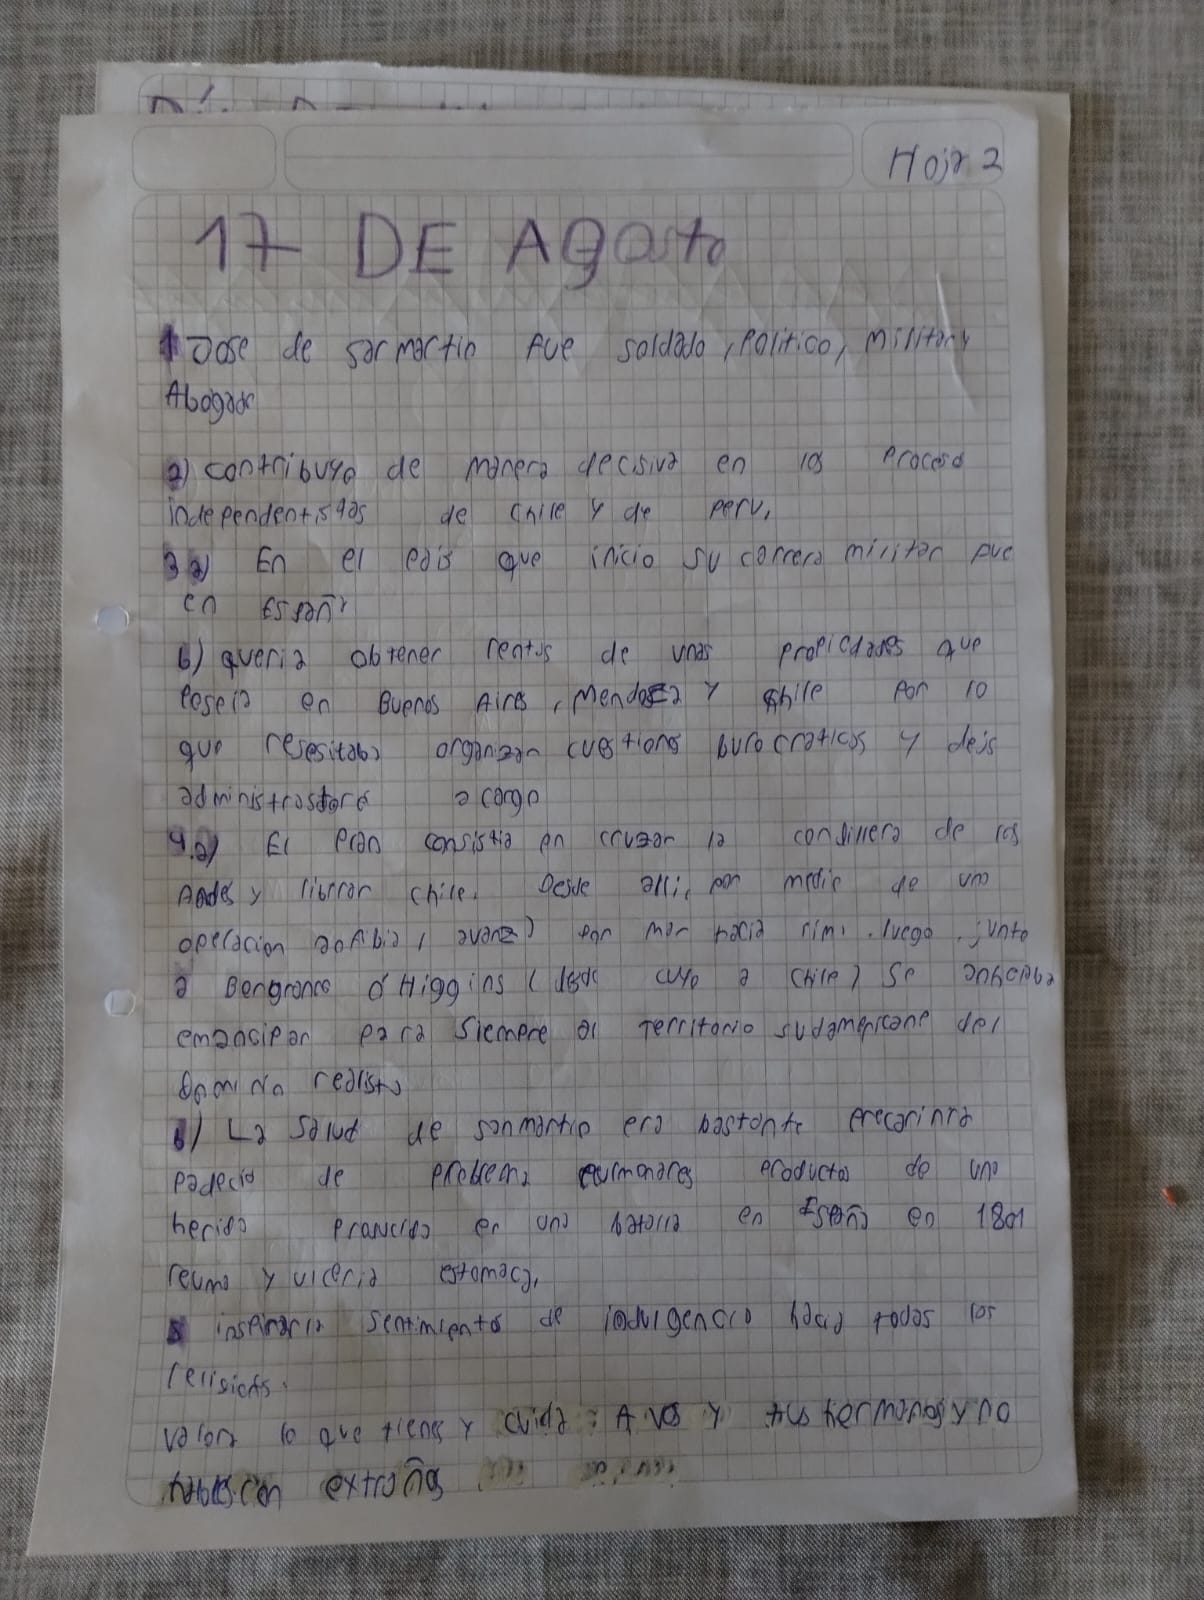 Hoja 2
17 DE Agosto
1 Jose de sarmartin fue soldado, Politico, militar y
Abogado
2) contribuyo de manera decisiva en los proceso
independentistas de chile y de peru,
3 a) En el pais que inicio su carrera militar fue
en España
b) queria obtener rentas de unas propiedades que
poseia en Buenos Aires, Mendoza y chile por lo
que nesesitaba organizar cuestions burocraticas y dejs
a cargo
4.a) El Plan consistia en cruzar la condillera de los
Andes y librrar chile. Desde alli, por medio de una
operacion anfibia, avanza por mar hacia lima. luego. junto
a O'Higgins (desde cuyo a chile) se
emancipar para siempre al territorio sudamericano del
realista
b) La salud de sanmartin era bastante
padecia de problema pulmonares productos de una
herida en una batalla en España en 1801
reuma y ulceria estomaca,
5 inspiraria sentimientos de indulgencia hacia todas las
valora lo que tienes y cuida: A vos y tus hermanos y no
extraños